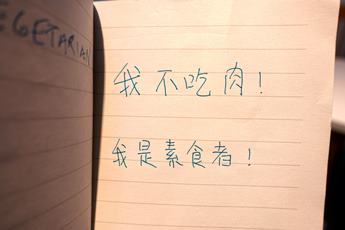 VEGETARIAN
我不吃肉！
我是素食者！